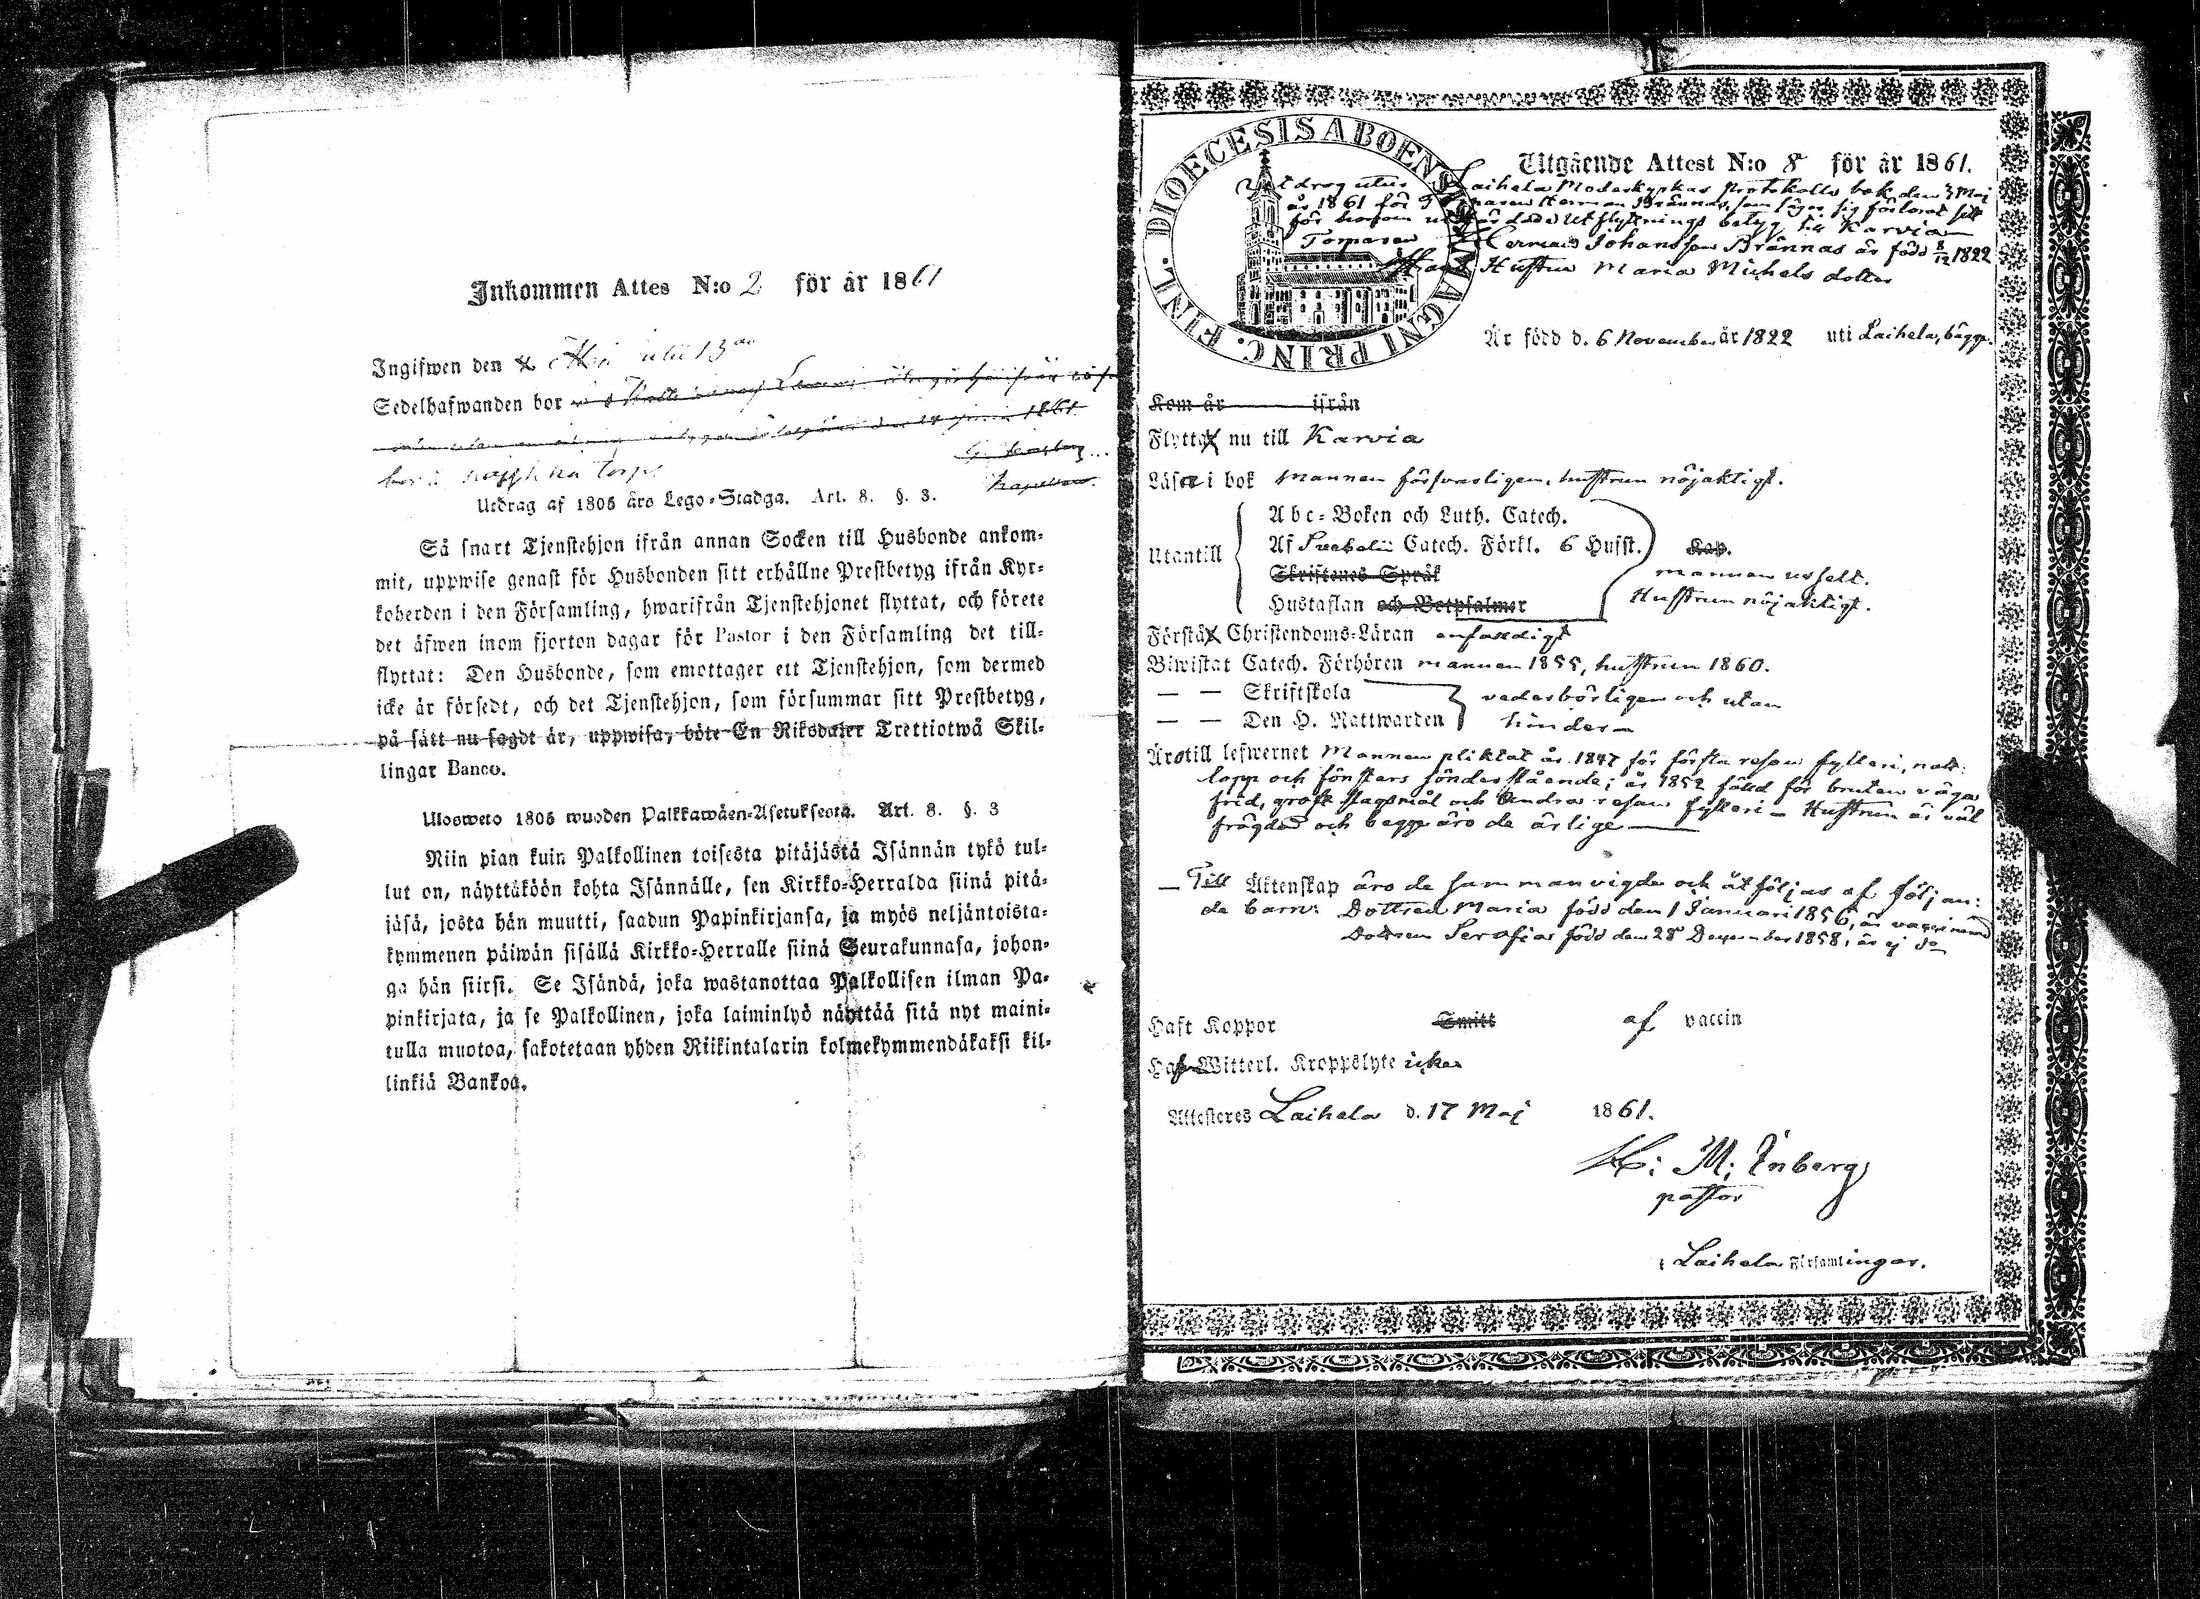 Inkommen Attes N:o 2 för år 1861
Ingifwen den
Sedelhafwanden bor
1861.
bor å torp.
Utdrag af 1805 års Lego-Stadga. Art. 8. §. 3.
Så snart Tjenstehjon ifrån annan Socken till Husbonde ankom-
mit, uppwise genast för Husbonden sitt erhållne Prestbetyg ifrån Kyr-
koherden i den Församling, hwarifrån Tjenstehjonet flyttat, och förete
det äfwen inom fjorton dagar för Pastor i den Församling det till-
flyttat: Den Husbonde, som emottager ett Tjenstehjon, som dermed
icke är försedt, och det Tjenstehjon, som försummar sitt Prestbetyg,
på sätt nu sagdt är, uppwisa, böte En Riksdaler Trettiotwå Skil-
lingar Banco.
Ulosweto 1805 wuoden Palkkawäen-Asetuksesta. Art. 8. §. 3
Niin pian kuin Palkollinen toisesta pitäjästä Isännän tykö tul-
lut on, näyttäköön kohta Isännälle, sen Kirkko-Herralda siinä pitä-
jäsä, josta hän muutti, saadun Papinkirjansa, ja myös neljäntoista-
kymmenen päiwän sisällä Kirkko-Herralle siinä Seurakunnasa, johon-
ga hän siirsi. Se Isändä, joka wastanottaa Palkollisen ilman Pa-
pinkirjata, ja se Palkollinen, joka laiminlyö näyttää sitä nyt maini-
tulla muotoa, sakotetaan yhden Riikintalarin kolmekymmendäkaksi kil-
linkiä Bankoa.
DIOECESIS ABOENSIS MAGNI PRINC. FINL.
Utgående Attest N:o 8 för år 1861.
Utdrag utur Laihela Moderkyrkas protokolls bok den 3 Maj
år 1861 för Herman Brännas, som säger sig förlorat sitt
för honom utflyttnings betyg till Karvia
Herman Johansson Brännas är född 8/12 1822
Hustru Maria Michels dotter
Är född d. 6 November år 1822 uti Laihela, bägge.
Kom år ifrån
Flytta nu till Karvia
Läser i bok mannen försvarligen, hustrun nöjaktigt.
Utantill
Abc-Boken och Luth. Catech.
Af Svebelii Catech. Förkl. 6 Husst. Kap.
Skriftenes Språk mannen usselt.
Hustaflan och Botpsalmer Hustrun nöjaktligt.
Förstå Christendoms-Läran enfaldigt
Biwistat Catech. Förhören mannen 1855, hustrun 1860.
— — Skriftskola vederbörligen och utan
— — Den H. Nattwarden hinder
Äro till lefwernet Mannen pliktat år 1847 för första resan fylleri, natt:
lopp och fönsters sönderslående; år 1852 fälld för bruten väga
frid, groft slagsmål och andra resan fylleri — Hustrun är väl
frägdad och bägge äro de ärlige
— Till Äktenskap äro de samman vigde och åtföljas af följan:
de barn: Dottren Maria född den 1 Januari 1856, är vaccinerad
Dottren Serafia född den 28 December 1858, är ej do
Haft Koppor Smitt af vaccin
Haf Witterl. Kroppslyte icke
Attesteres Laihela d. 17 Maj 1861.
H: M: Enberg
pastor
i Laihela Församlingar.